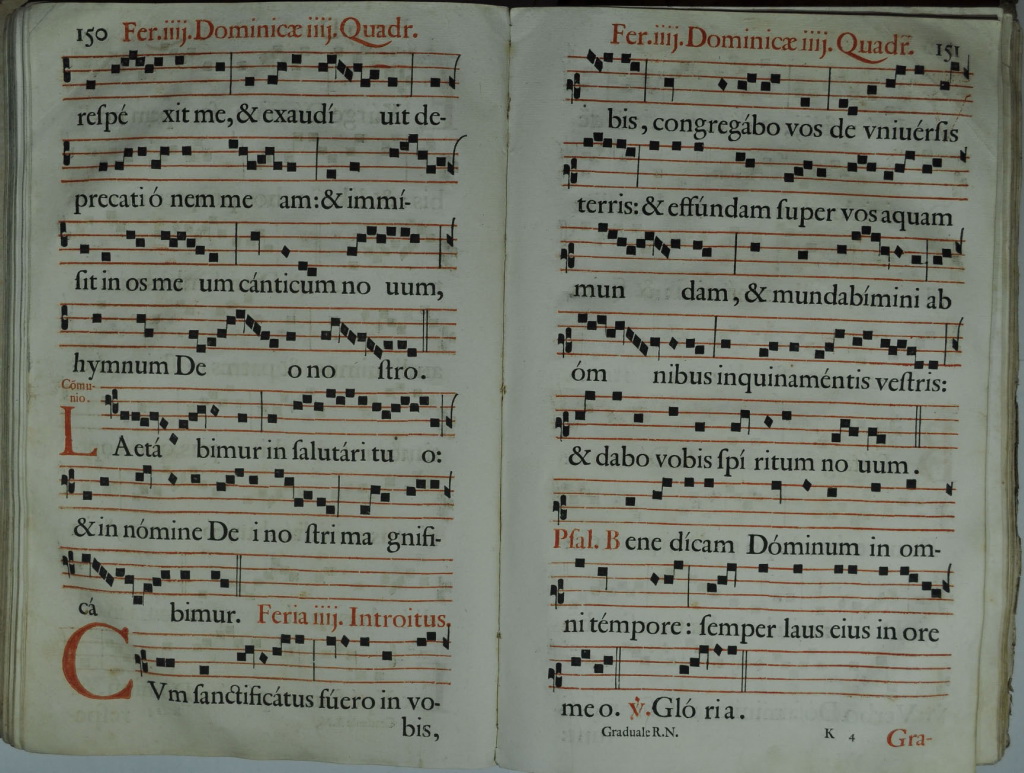 150 Fer.iiij.Dominicæ iiij. Quadr.
reſpé xit me, & exaudí uit de-
precati ó nem me am: & immí-
ſit in os me um cánticum no uum,
hymnum De o no ſtro.
Cõmu-
nio.
LAetá bimur in ſalutári tu o:
& in nómine De i no ſtri ma gnifi-
cá bimur. Feria iiij. Introitus.
CVm ſanctificátus fúero in vo-
bis,
Fer.iiij.Dominicæ iiij. Quadr. 151
bis, congregábo vos de vniuérſis
terris: & effúndam ſuper vos aquam
mun dam, & mundabímini ab
óm nibus inquinaméntis veſtris:
& dabo vobis ſpí ritum no uum.
Pſal. Bene dícam Dóminum in om-
ni témpore: ſemper laus eius in ore
me o. ℣. Gló ri a.
Graduale R.N. K 4 Gra-